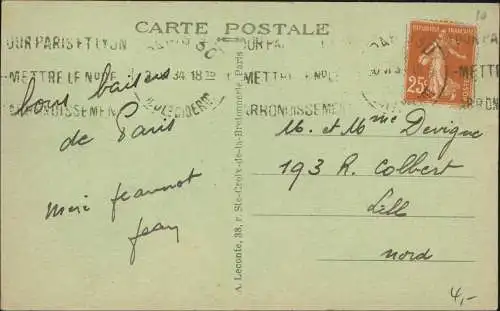 CARTE POSTALE
OUR PARIS ET LYON
METTRE LE No DE
ARRONDISSEMEN
34 18
OUR PARIS
METTRE LE No DE
ARRONDISSEMENT
REPUBLIQUE FRANÇAISE
25c
POSTES
METTRE
bons baisers
de Paris
Jean
A. Leconte, 38, r. Ste-Croix-de-la-Bretonnerie, Paris
M. et Mme Devigne
193 R. Colbert
Lill
Nord
4,-